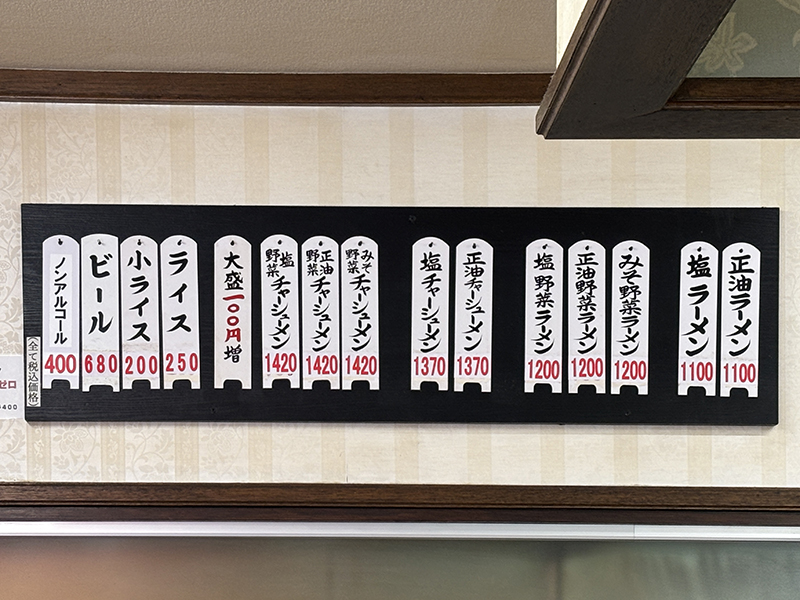 正油ラーメン
1100
塩ラーメン
1100
みそ野菜ラーメン
1200
正油野菜ラーメン
1200
塩野菜ラーメン
1200
正油チャーシューメン
1370
塩チャーシューメン
1370
みそ野菜チャーシューメン
1420
正油野菜チャーシューメン
1420
塩野菜チャーシューメン
1420
大盛一〇〇円増
ライス
250
小ライス
200
ビール
680
ノンアルコール
400
〈全て税込価格〉
ゼロ